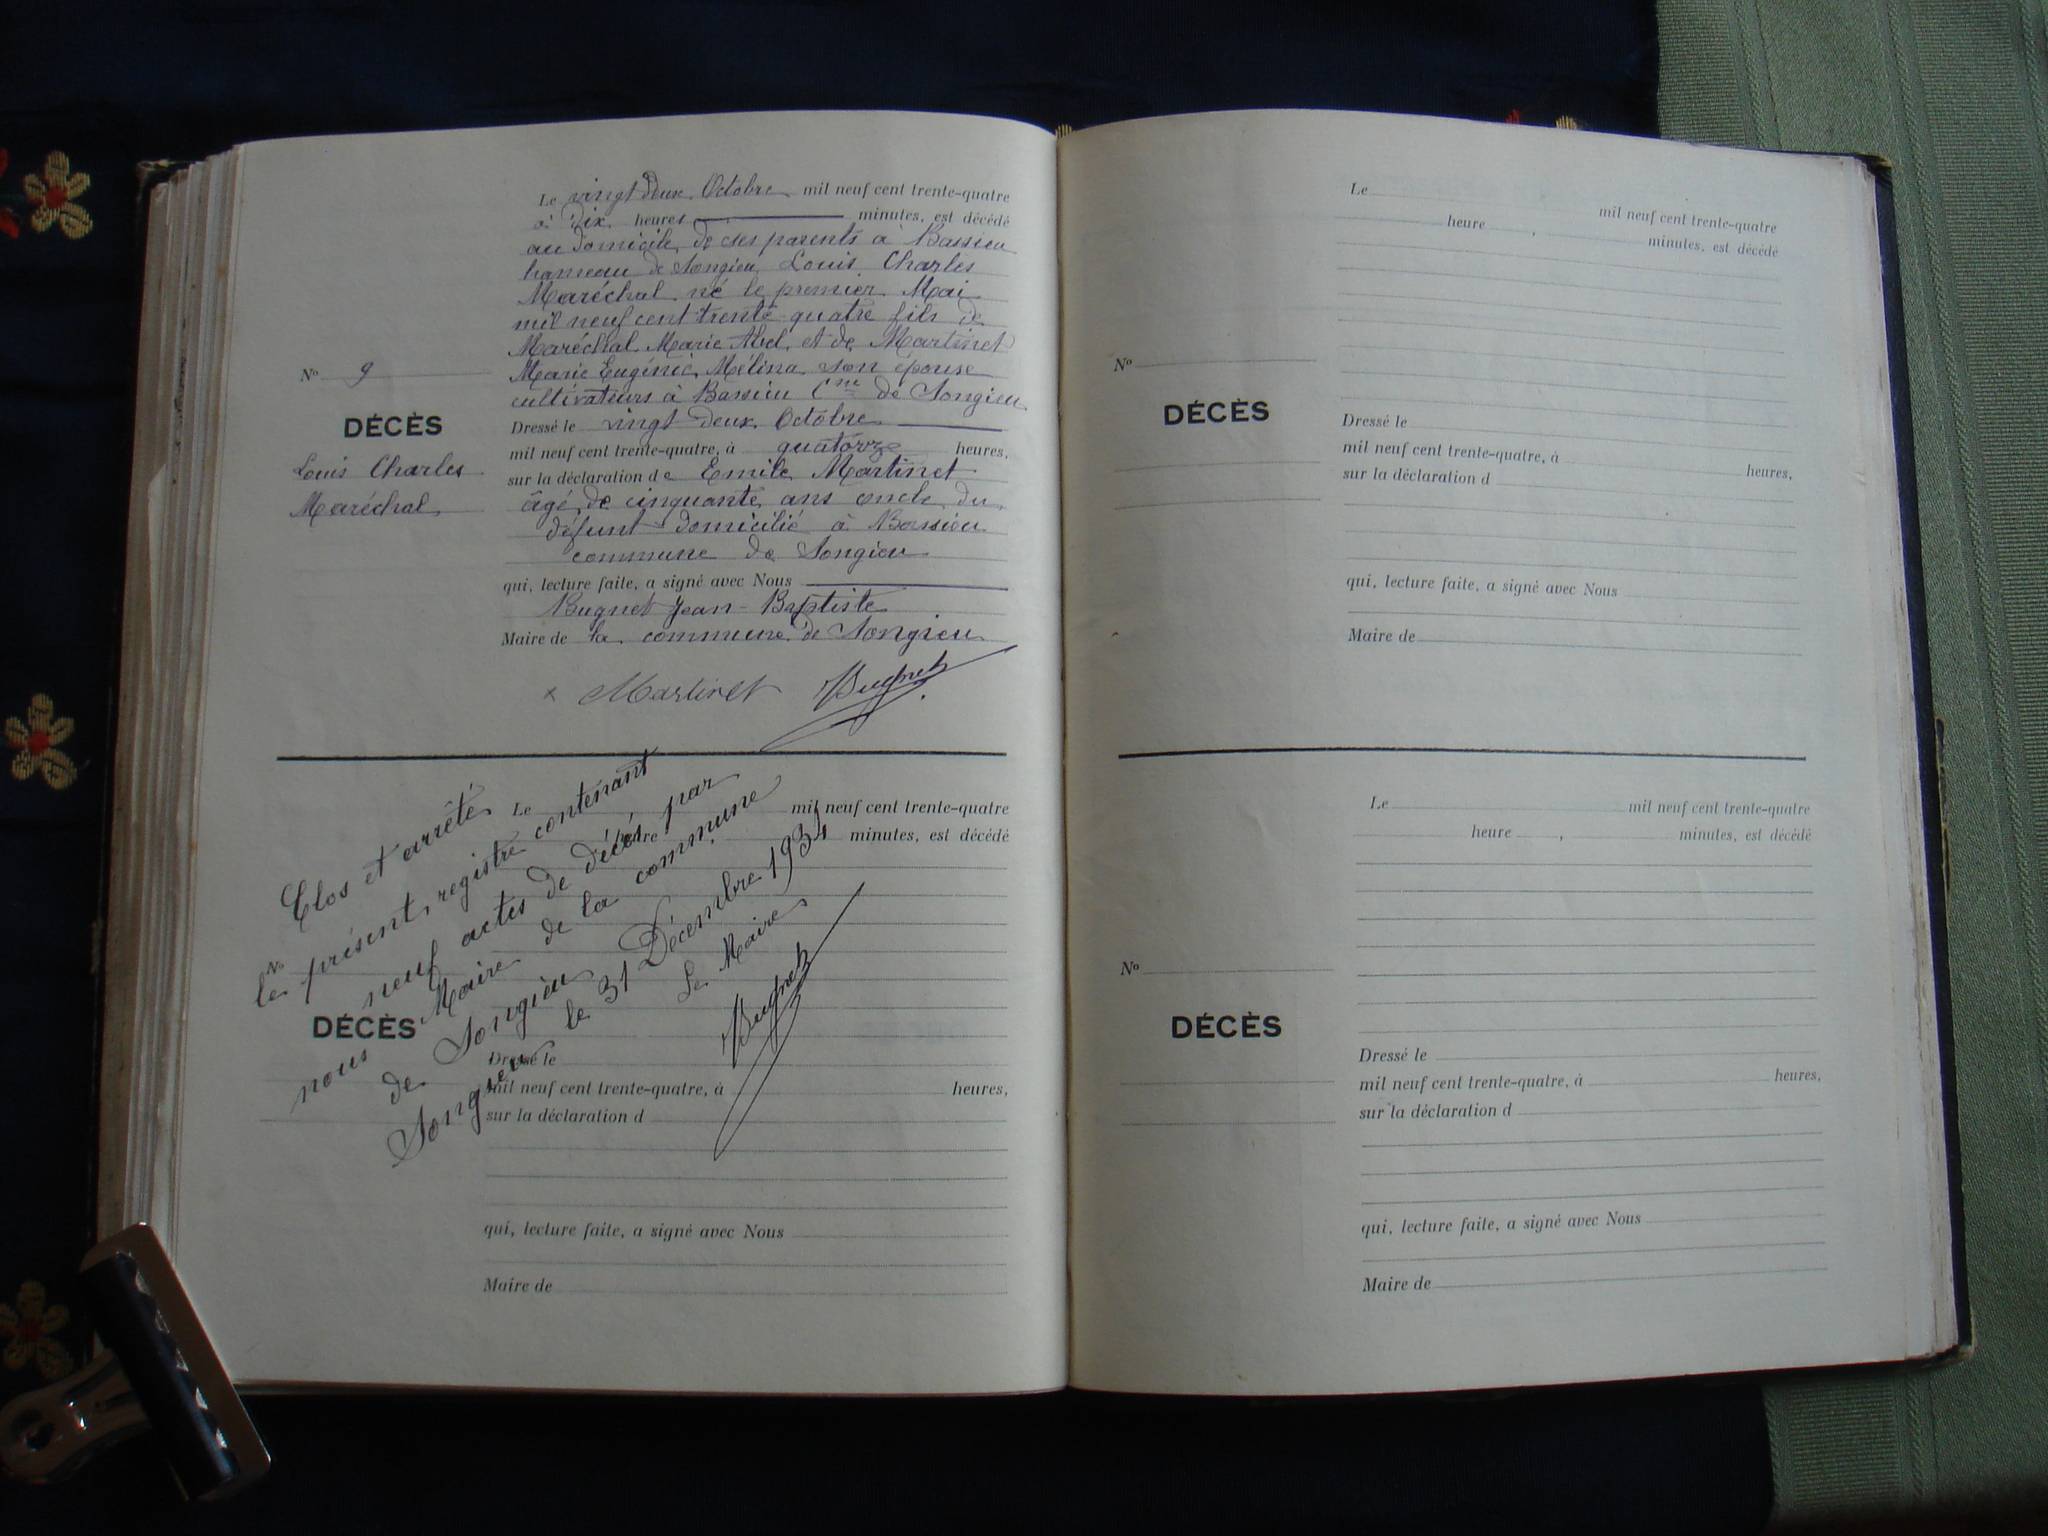 Le vingt deux Octobre mil neuf cent trente-quatre
à dix heures minutes, est décédé
au domicile de ses parents à Bassieu
hameau de Songieu Louis Charles
Maréchal né le premier Mai
mil neuf cent trente quatre fils de
Maréchal Marie Abel et de Martinet
Marie Eugénie Mélina son épouse
cultivateurs à Bassieu Cne de Songieu
Nº 9
DÉCÈS
Louis Charles
Maréchal
Dressé le vingt deux Octobre
mil neuf cent trente-quatre, à quatorze heures,
sur la déclaration de Emile Martinet
âgé de cinquante ans oncle du
défunt domicilié à Bassieu
commune de Songieu
qui, lecture faite, a signé avec Nous
Bugnet Jean-Baptiste
Maire de la commune de Songieu
x Martinet Bugnet
Le mil neuf cent trente-quatre
heure minutes, est décédé
Clos et arrêté
le présent registre contenant
neuf actes de décès par
nous Maire de la commune
de Songieu
Songieu le 31 Décembre 1934
Le Maire
Bugnet
Nº
DÉCÈS
Dressé le
mil neuf cent trente-quatre, à heures,
sur la déclaration d
qui, lecture faite, a signé avec Nous
Maire de
Le mil neuf cent trente-quatre
heure , minutes, est décédé
Nº
DÉCÈS
Dressé le
mil neuf cent trente-quatre, à heures,
sur la déclaration d
qui, lecture faite, a signé avec Nous
Maire de
Le mil neuf cent trente-quatre
heure , minutes, est décédé
Nº
DÉCÈS
Dressé le
mil neuf cent trente-quatre, à heures,
sur la déclaration d
qui, lecture faite, a signé avec Nous
Maire de